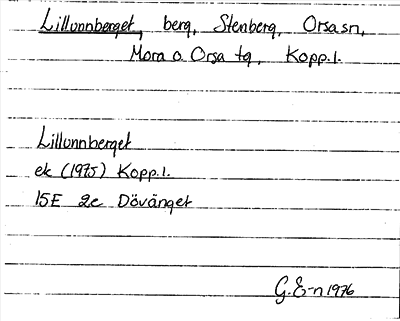 Lillunnberget, berg, Stenberg, Orsa sn,
Mora o. Orsa tg, Kopp. l.
Lillunnberget
ek (1975) Kopp. l.
15E 2e Dövänget
G. E-n 1976